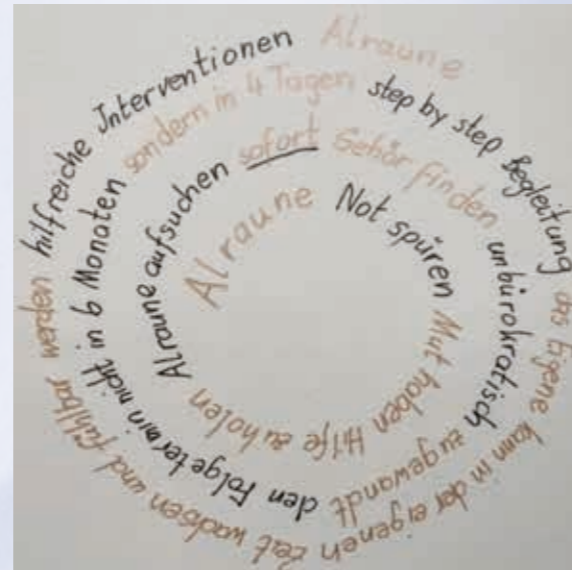 Alraune Not spüren Mut haben Hilfe zu holen
Alraune aufsuchen sofort Gehör finden unbürokratisch zugewandt
den Folgetermin nicht in 6 Monaten sondern in 4 Tagen step by step Begleitung das Eigene kann in der eigenen Zeit wachsen und fühlbar werden
hilfreiche Interventionen Alraune